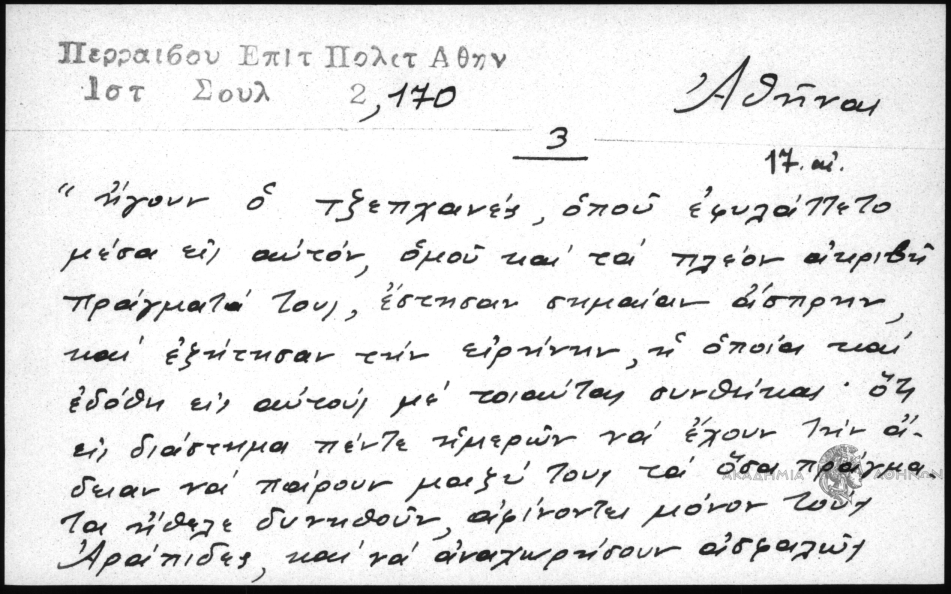 Περραιβου Επιτ Πολετ Αθην
Ιστ Σουλ 2,170
Ἀθῆναι
3
17. αἰ.
“ ἤγουν ὁ τζεπχανές, ὁποῦ ἐφυλάττετο
μέσα εἰς αὐτόν, ὁμοῦ καί τά πλέον ἀκριβῆ
πράγματά τους, ἔστησαν σημαίαν ἄσπρην,
καί ἐξήτησαν τήν εἰρήνην, ἡ ὁποία καί
ἐδόθη εἰς αὐτούς μέ τοιαύτας συνθήκας· ὅτι
εἰς διάστημα πέντε ἡμερῶν νά ἔχουν τήν ἄ-
δειαν νά πάρουν μαζύ τους τά ὅσα πράγμα-
τα ἤθελε δυνηθοῦν, ἀφίνοντες μόνον τούς
Ἀράπιδες, καί νά ἀναχωρήσουν ἀσφαλῶς
ΑΚΑΔΗΜΙΑ ΑΘΗΝΩΝ